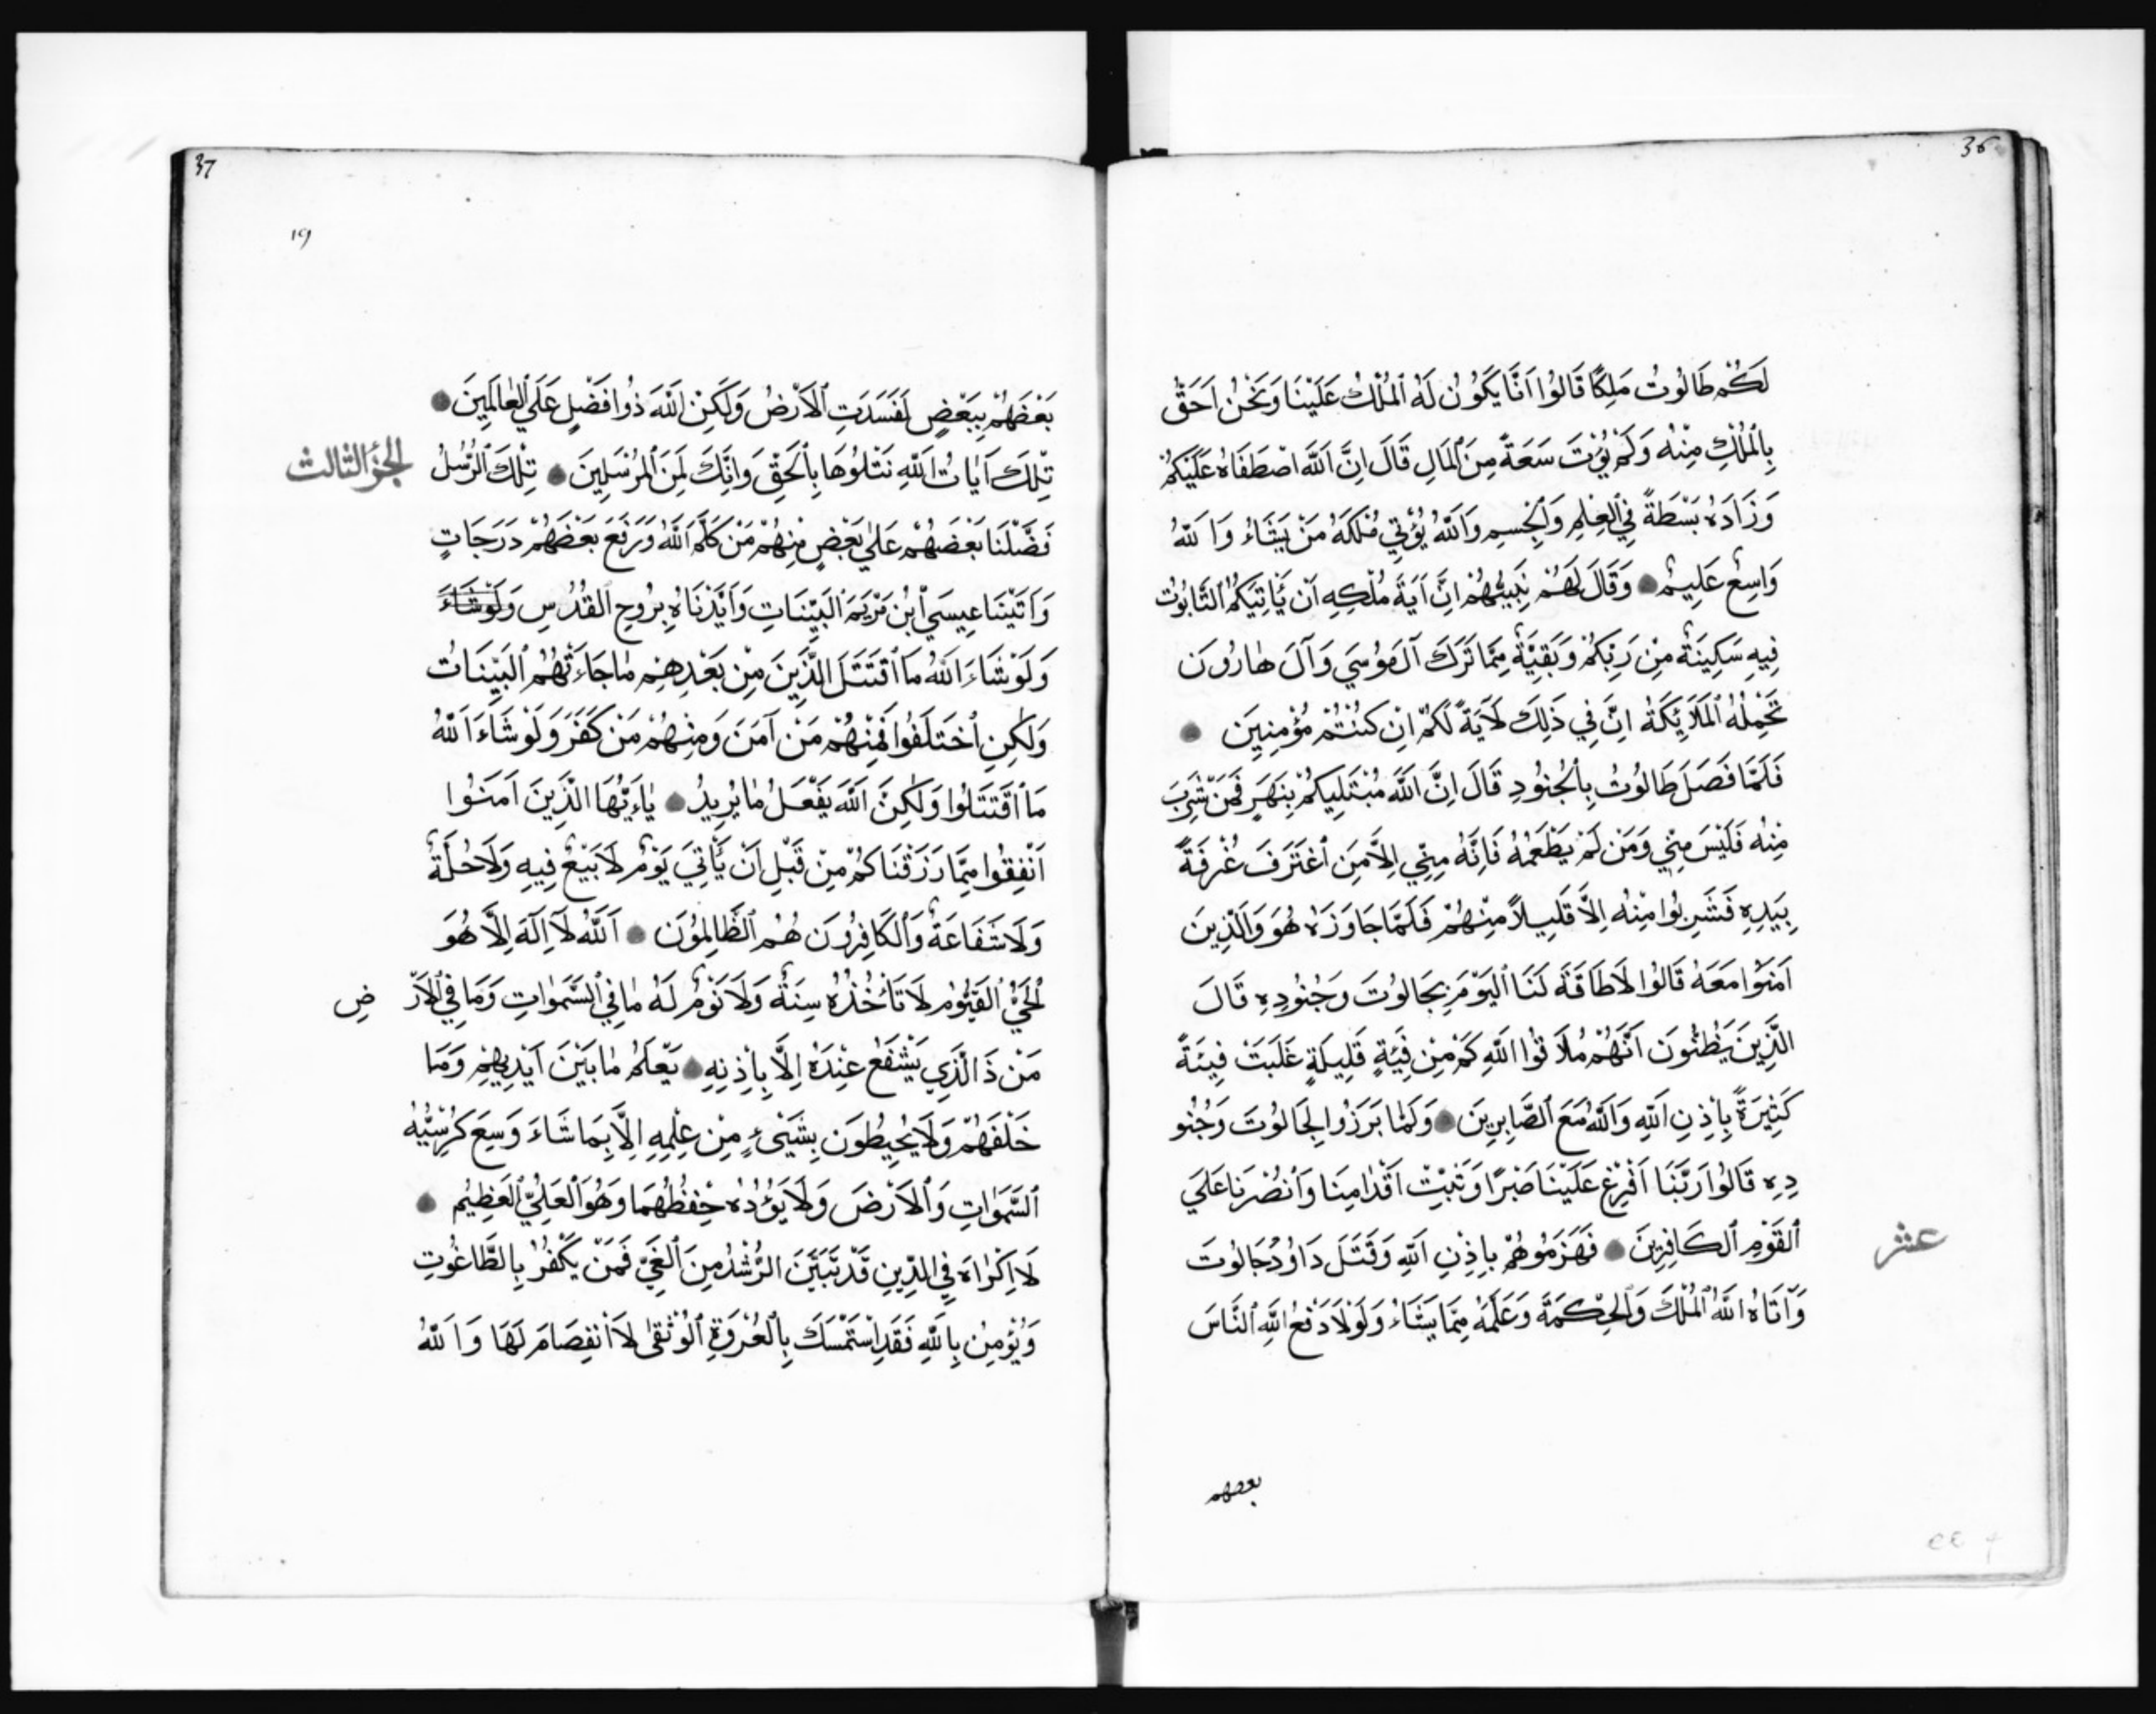 36
لَكُمْ طَالُوتُ مَلِكًا قَالُوا اَنَّا يَكُونُ لَهُ ٱلمُلْكُ عَلَيْنَا وَنَحْنُ اَحَقُّ
بِٱلمُلْكِ مِنْهُ وَلَمْ يُؤْتَ سَعَةً مِنَ ٱلمَالِ قَالَ اِنَّ ٱللّٰهَ اصْطَفَاهُ عَلَيْكُمْ
وَزَادَهُ بَسْطَةً فِي ٱلعِلْمِ وَٱلجِسمِ وَٱللّٰهُ يُؤْتِي مُلْكَهُ مَنْ يَشَاءُ وَٱللّٰهُ
وَاسِعٌ عَلِيمٌ وَقَالَ لَهُمْ نَبِيُّهُمْ اِنَّ اَيَةَ مُلْكِهِ اَن يَأْتِيَكُمُ التَّابُوتُ
فِيهِ سَكِينَةٌ مِنْ رَبِّكُمْ وَبَقِيَّةٌ مِمَّا تَرَكَ آلُ مُوسَي وَآلَ هٰارُونَ
تَحْمِلُهُ ٱلمَلَائِكَةُ اِنَّ فِي ذَلِكَ لَآيَةً لَكُمْ اِنْ كُنْتُمْ مُؤْمِنِينَ
فَلَمَّا فَصَلَ طَالُوتُ بِٱلجُنُودِ قَالَ اِنَّ ٱللّٰهَ مُبْتَلِيكُمْ بِنَهَرٍ فَمَنْ شَرِبَ
مِنْهُ فَلَيْسَ مِنِّي وَمَن لَمْ يَطْعَمْهُ فَاِنَّهُ مِنِّي اِلَّا مَنِ ٱغْتَرَفَ غُرْفَةً
بِيَدِهِ فَشَرِبُوا مِنْهُ اِلَّا قَلِيلاً مِنْهُمْ فَلَمَّا جَاوَزَهُ هُوَ وَٱلَّذِينَ
اَمَنُوا مَعَهُ قَالُوا لَا طَاقَةَ لَنَا ٱليَوْمَ بِجَالُوتَ وَجُنُودِهِ قَالَ
الَّذِينَ يَظُنُّونَ اَنَّهُمْ مُلَاقُوا ٱللّٰهِ كَمْ مِنْ فِئَةٍ قَلِيلَةٍ غَلَبَتْ فِيئَةً
كَثِيرَةً بِاِذِنِ ٱللّٰهِ وَٱللّٰهُ مَعَ ٱلصَّابِرِينَ وَلَمَّا بَرَزُوا لِجَالُوتَ وَجُنُو
دِهِ قَالُوا رَبَّنَا اَفْرِغْ عَلَيْنَا صَبْرًا وَثَبِّتْ اَقْدٰامِنَا وَٱنْصُرْنَا عَلَي
ٱلقَوْمِ ٱلكَافِرِينَ فَهَزَمُوهُمْ بِاِذِنِ ٱللّٰهِ وَقَتَلَ دَاوُدُ جَالُوتَ
عشر
وَآتَاهُ اللّٰهُ ٱلمُلْكَ وَٱلحِكْمَةَ وَعَلَّمَهُ مِمَّا يَشَاءُ وَلَوْلَا دَفْعُ ٱللّٰهِ ٱلنَّاسَ
بعضهم
37
١٩
بَعْضَهُمْ بِبَعْضٍ لَفَسَدَتِ ٱلاَرْضُ وَلَكِنَّ ٱللّٰهَ ذُوا فَضْلٍ عَلَي ٱلعَالَمِينَ
تِلْكَ اَيٰاتُ ٱللّٰهِ نَتْلُوهَا بِٱلحَقِّ وَاِنَّكَ لَمِنَ ٱلمُرْسَلِينَ تِلْكَ ٱلرُّسُلُ
الجزء الثالث
فَضَّلْنَا بَعْضَهُمْ عَلَي بَعْضٍ مِنْهُمْ مَنْ كَلَّمَ ٱللّٰهُ وَرَفَعَ بَعْضَهُمْ دَرَجَاتٍ
وَاَتَيْنَا عِيسَي ٱبْنَ مَرْيَمَ ٱلبَيِّنَاتِ وَاَيَّدْنَاهُ بِرُوحِ ٱلقُدُسِ وَلَوْشَاءَ
وَلَوْ شَاءَ ٱللّٰهُ مَا ٱقْتَتَلَ الَّذِينَ مِنْ بَعْدِهِمْ مٰا جَاءَتْهُمُ ٱلبَيِّنَاتُ
وَلَكِنِ ٱخْتَلَفُوا فَمِنْهُمْ مَنْ آمَنَ وَمِنْهُمْ مَنْ كَفَرَ وَلَوْ شَاءَ ٱللّٰهُ
مَا ٱقْتَتَلُوا وَلَكِنَّ ٱللّٰهَ يَفْعَلُ مٰا يُرِيدُ يٰاءَيُّهَا الَّذِينَ اَمَنُوا
اَنْفِقُوا مِمَّا رَزَقْنَاكُمْ مِنْ قَبْلِ اَنْ يَأْتِيَ يَوْمٌ لَا بَيْعٌ فِيهِ وَلَا خُلَّةٌ
وَلَا شَفَاعَةٌ وَٱلكَافِرُونَ هُمُ ٱلظَّالِمُونَ اَللّٰهُ لَا اِلَهَ اِلَّا هُوَ
ٱلحَيُّ ٱلقَيُّومُ لَا تَأْخُذُهُ سِنَةٌ وَلَا نَوْمٌ لَهُ مٰا فِي ٱلسَّمٰوَاتِ وَمَا فِي ٱلاَرْ ضِ
مَنْ ذَا ٱلَّذِي يَشْفَعُ عِنْدَهُ اِلَّا بِاِذِنِهِ يَعْلَمُ مٰا بَيْنَ اَيْدِيهِمْ وَمَا
خَلْفَهُمْ وَلَا يُحِيطُونَ بِشَيْءٍ مِنْ عِلْمِهِ اِلَّا بِمَا شَاءَ وَسِعَ كُرْسِيُّهُ
ٱلسَّمٰوَاتِ وَٱلاَرْضَ وَلَا يَؤُدُهُ حِفْظُهُمَا وَهُوَ ٱلعَلِيُّ ٱلعَظِيمُ
لَا اِكْرٰاهَ فِي ٱلدِّينِ قَدْ تَبَيَّنَ الرُّشْدُ مِنَ ٱلغَيِّ فَمَنْ يَكْفُرْ بِالطَّاغُوتِ
وَيُؤْمِنْ بِٱللّٰهِ فَقَدِ اسْتَمْسَكَ بِٱلعُرْوَةِ ٱلوُثْقَىٰ لَا ٱنْفِصَامَ لَهَا وَٱللّٰهُ